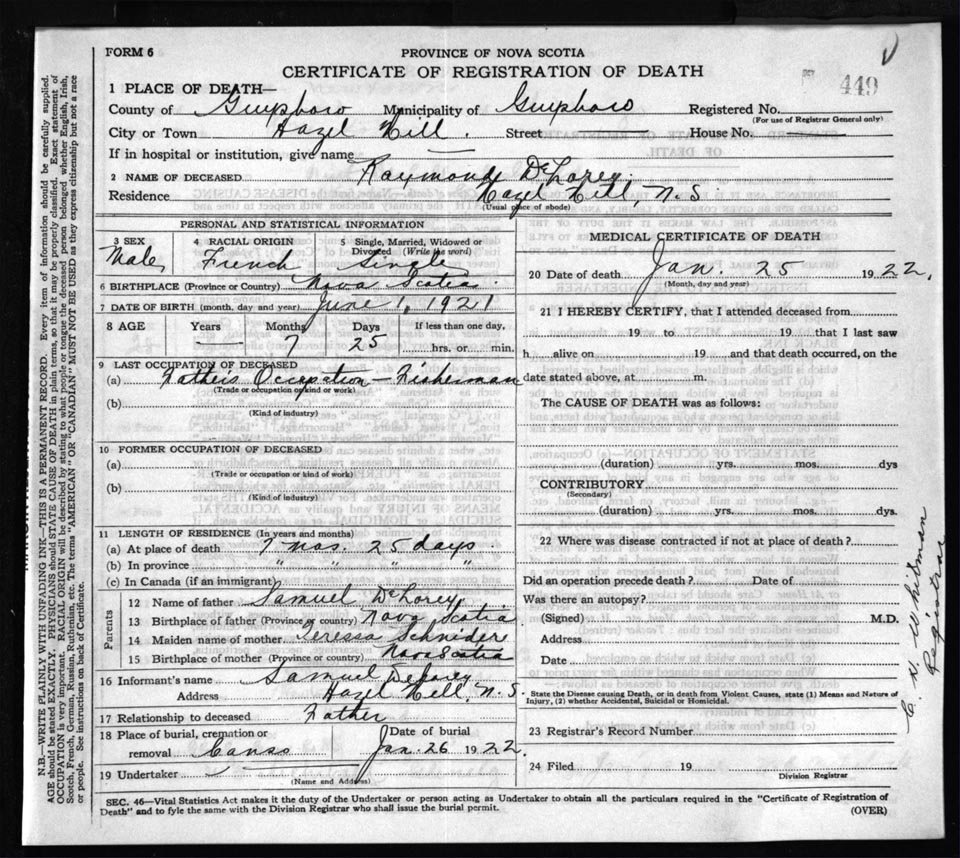 FORM 6
PROVINCE OF NOVA SCOTIA
CERTIFICATE OF REGISTRATION OF DEATH
449
1 PLACE OF DEATH—
County of Guysboro Municipality of Guysboro Registered No.
(For use of Registrar General only)
City or Town Hazel Hill. Street House No.
If in hospital or institution, give name
2 NAME OF DECEASED Raymond DeLorey.
Residence Hazel Hill, N.S
(Usual place of abode)
PERSONAL AND STATISTICAL INFORMATION
3 SEX Male
4 RACIAL ORIGIN French
5 Single, Married, Widowed or Divorced (Write the word) Single
6 BIRTHPLACE (Province or Country) Nova Scotia.
7 DATE OF BIRTH (month, day and year) June 1, 1921
8 AGE Years Months Days If less than one day,
— 7 25 hrs. or min.
9 LAST OCCUPATION OF DECEASED
(a) Father's Occupation — Fisherman
(Trade or occupation or kind or work)
(b)
(Kind of industry)
10 FORMER OCCUPATION OF DECEASED
(a)
(Trade or occupation or kind of work)
(b)
(Kind of industry)
11 LENGTH OF RESIDENCE (In years and months)
(a) At place of death 7 mos. 25 days.
(b) In province " " " "
(c) In Canada (if an immigrant)
Parents
12 Name of father Samuel DeLorey,
13 Birthplace of father (Province or country) Nova Scotia
14 Maiden name of mother Teressa Schnider
15 Birthplace of mother (Province or country) Nova Scotia
16 Informant's name Samuel DeLorey,
Address Hazel Hill, N.S
17 Relationship to deceased Father
18 Place of burial, cremation or removal Canso
Date of burial Jan. 26 1922.
19 Undertaker
(Name and Address)
MEDICAL CERTIFICATE OF DEATH
20 Date of death Jan. 25 1922,
(Month, day and year)
21 I HEREBY CERTIFY, that I attended deceased from
19 to 19 that I last saw
h alive on 19 and that death occurred, on the
date stated above, at m.
The CAUSE OF DEATH was as follows:
(duration) yrs. mos. dys
CONTRIBUTORY
(Secondary)
(duration) yrs. mos. dys.
22 Where was disease contracted if not at place of death?
Did an operation precede death? Date of
Was there an autopsy?
(Signed) M.D.
Address
Date
State the Disease causing Death, or in death from Violent Causes, state (1) Means and Nature of
Injury, (2) whether Accidental, Suicidal or Homicidal.
23 Registrar's Record Number
24 Filed 19
Division Registrar
Whitman
Registrar
SEC. 46—Vital Statistics Act makes it the duty of the Undertaker or person acting as Undertaker to obtain all the particulars required in the "Certificate of Registration of
Death" and to fyle the same with the Division Registrar who shall issue the burial permit.
(OVER)
N.B.—WRITE PLAINLY WITH UNFADING INK—THIS IS A PERMANENT RECORD. Every item of information should be carefully supplied.
AGE should be stated EXACTLY. PHYSICIANS should STATE CAUSE OF DEATH in plain terms, so that it may be properly classified. Exact statement of
OCCUPATION is very important. RACIAL ORIGIN will be described by stating to what people or tongue the deceased person belonged whether English, Irish,
Scotch, French, German, Russian, Ruthenian, etc. The terms "AMERICAN" OR "CANADIAN" MUST NOT BE USED as they express citizenship but not a race
or people. See instructions on back of Certificate.